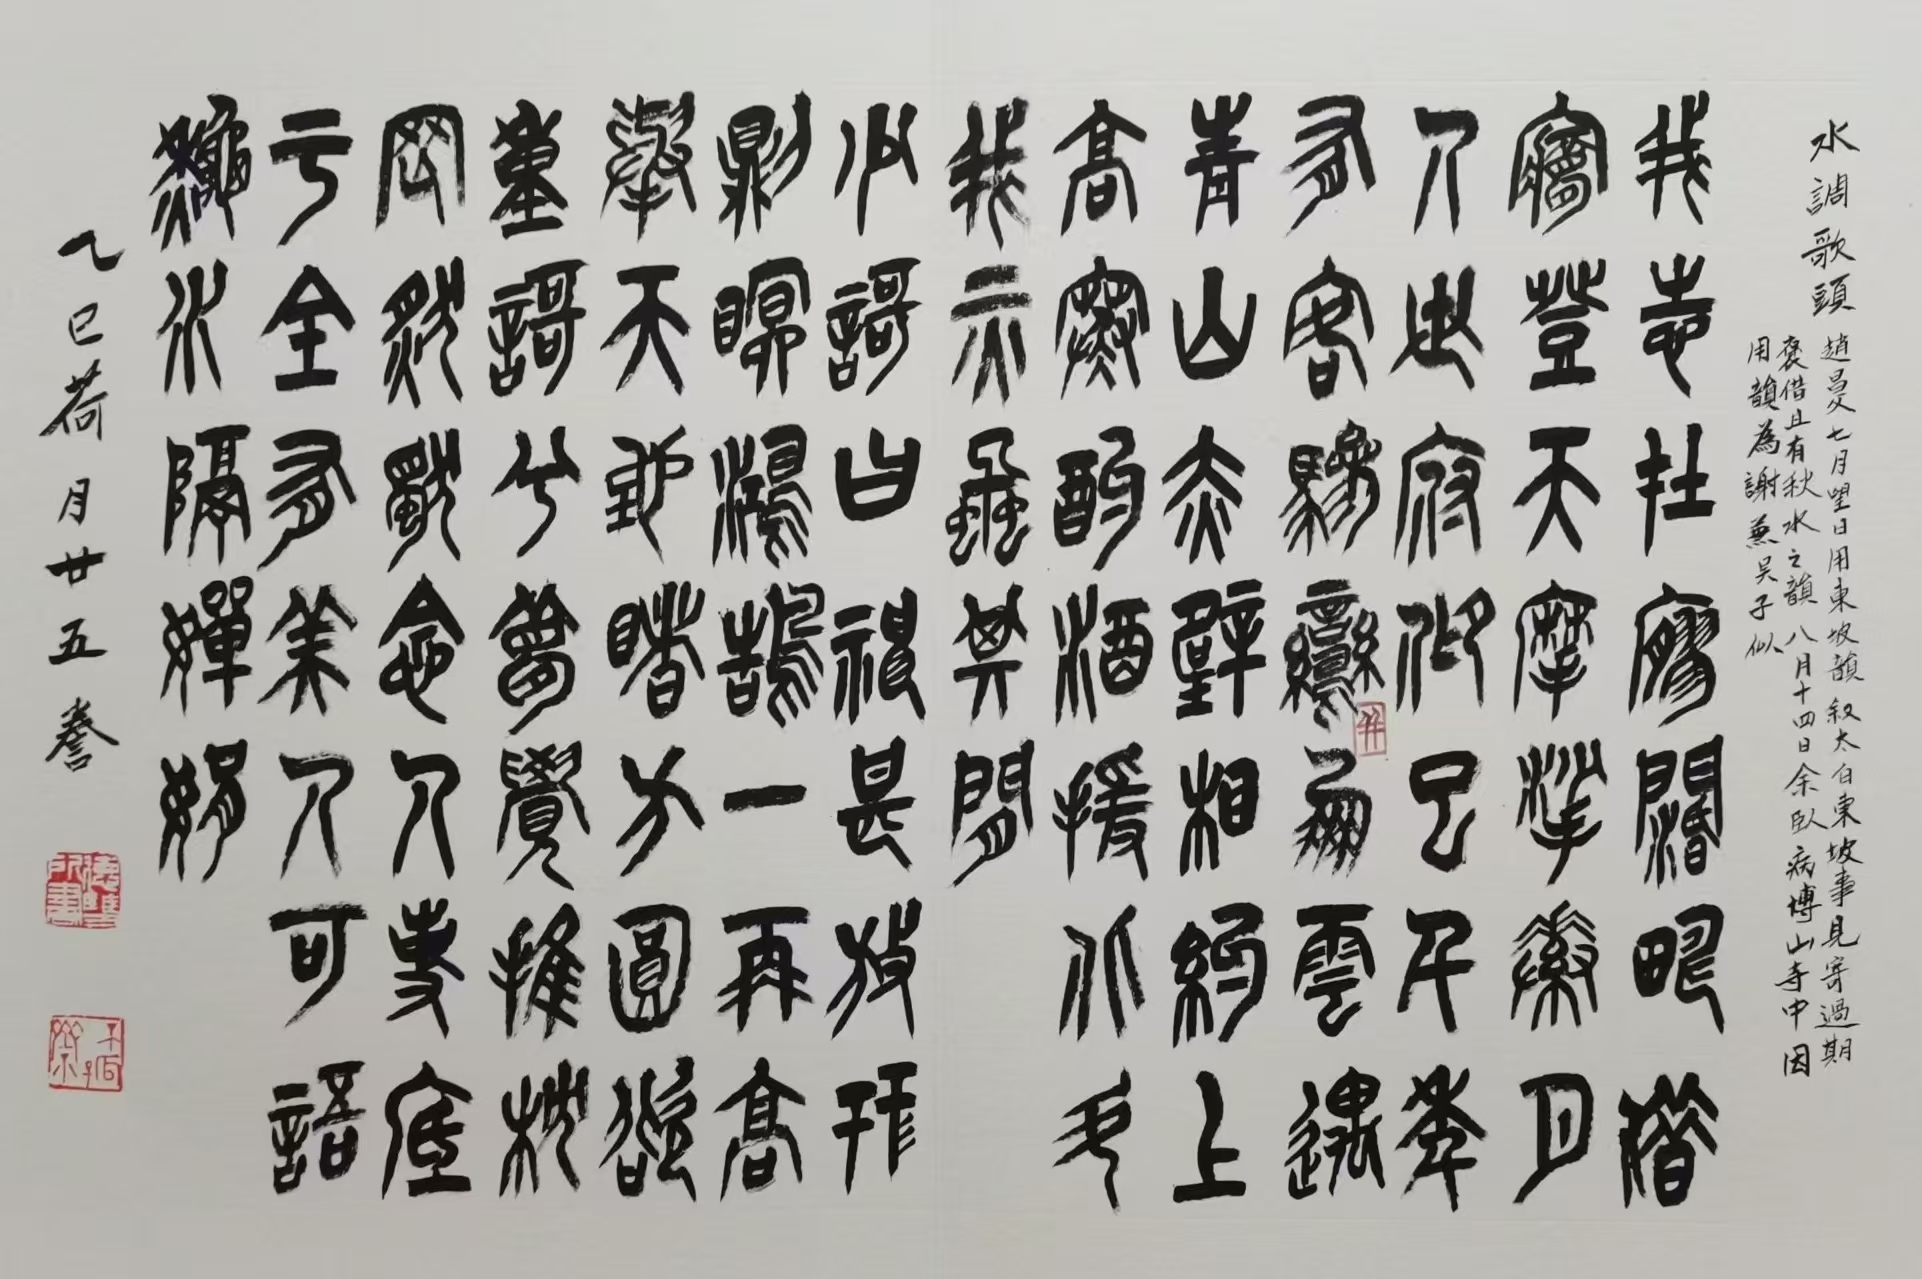 水調歌頭
趙昌父七月望日用東坡韻叙太白東坡事見寄過相
褒借且有秋水之韻八月十四日余臥病博山寺中因
用韻為謝兼吴子似
我志在寥闊疇昔
夢登天摩挲素月
人世俯仰已千年
有客驂鸞并鳳雲遇
青山赤壁相約上
高寒酌酒援北斗
我亦虱其間
少歌曰神甚放形
則瞑鴻鵠一再高
舉天地睹方圓欲
重歌兮夢覺推枕
罔然獨念人事底
虧全有美人可語
秋水隔嬋娟
乙巳荷月廿五誊